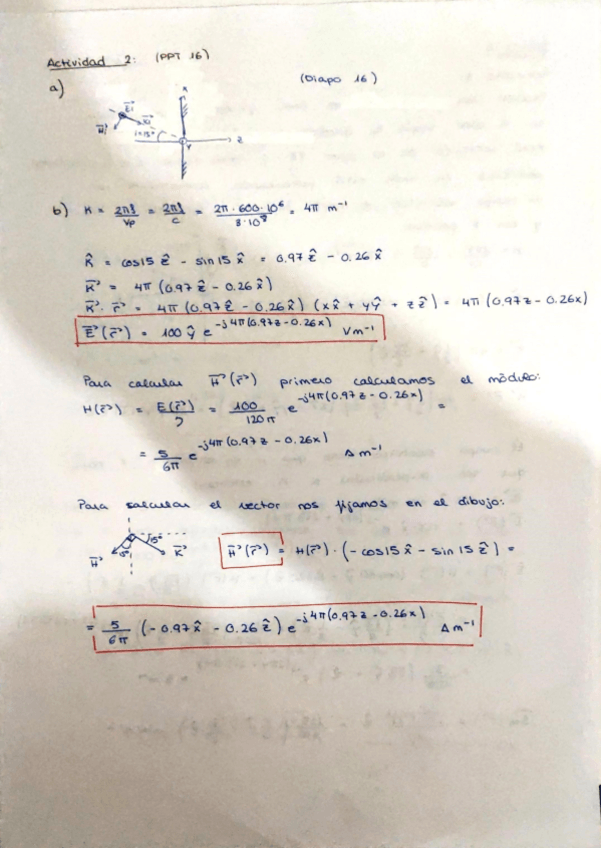 Actividad 2: (PPT 16)
a) (Diapo 16)
x
E i
K
H
i=15°
y
z
b) K = 2πf/Vp = 2πf/c = 2π·600·10⁶/3·10⁸ = 4π m⁻¹
K̂ = cos15 ẑ - sin15 x̂ = 0.97 ẑ - 0.26 x̂
K⃗ = 4π (0.97 ẑ - 0.26 x̂)
K⃗ · r⃗ = 4π (0.97 ẑ - 0.26 x̂) (x x̂ + y ŷ + z ẑ) = 4π (0.97z - 0.26x)
E⃗(r⃗) = 100 ŷ e^-j4π(0.97z-0.26x) V m⁻¹
Para calcular H⃗(r⃗) primero calculamos el módulo:
H(r⃗) = E(r⃗)/η = 100/120π e^-j4π(0.97z - 0.26x) =
= 5/6π e^-j4π(0.97z - 0.26x) A m⁻¹
Para salcular el vector nos fijamos en el dibujo:
H⃗ 15° 15° K⃗ H⃗(r⃗) = H(r⃗) · (- cos15 x̂ - sin 15 ẑ) =
= 5/6π (- 0.97 x̂ - 0.26 ẑ) e^-j4π(0.97z-0.26x) A m⁻¹